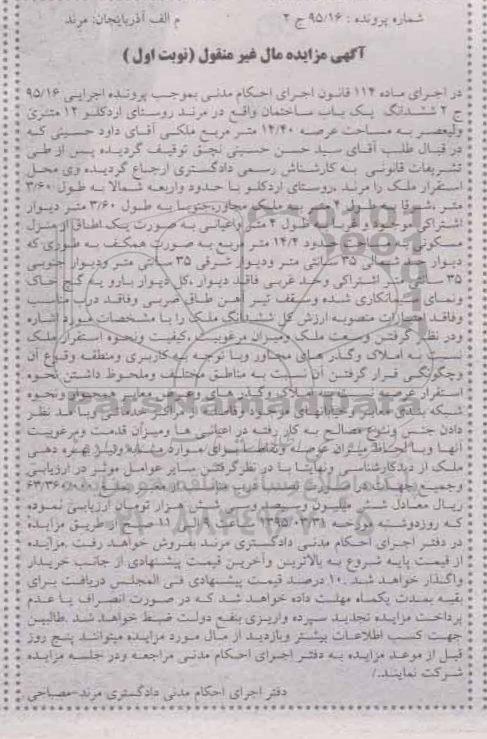 شماره پرونده : ۹۵/۱۶ ج ۲ م الف آذربایجان: مرند
آگهی مزایده مال غیر منقول (نوبت اول )
در اجرای ماده ۱۱۴ قانون اجرای احکام مدنی بموجب پرونده اجرایی ۹۵/۱۶
ج ۲ ششدانگ یک باب ساختمان واقع در مرند روستای اردکلو ۱۲ متری
ولیعصر به مساحت عرصه ۱۴/۴۰ متر مربع ملکی آقای داود حسینی که
در قبال طلب آقای سید حسن حسینی نجق توقیف گردیده پس از طی
تشریفات قانونی به کارشناس رسمی دادگستری ارجاع گردیده وی محل
استقرار ملک را مرند ،روستای اردکلو با حدود واربعه شمالا به طول ۳/۶۰
متر ،شرقا به طول ۴ متر به ملک مجاور،جنوبا به طول ۳/۶۰ متر دیوار
اشتراکی موجود ، غربا به طول ۴ متر واعیانی به صورت یک اطاق از منزل
مسکونی به مساحت حدود ۱۴/۴ متر مربع به صورت همکف به طوری که
دیوار حد شمالی ۳۵ سانتی متر ودیوار شرقی ۳۵ سانتی متر ودیوار جنوبی
۳۵ سانتی متر اشتراکی وحد غربی فاقد دیوار ،کل دیوار بارو به گچ خاک
ونمای سیمانکاری شده وسقف تیر آهن طاق ضربی وفاقد درب مناسب
وفاقد امتیازات منصوبه ارزش کل ششدانگ ملک را با مشخصات مورد اشاره
ودر نظر گرفتن وسعت ملک ومیزان مرغوبیت ،کیفیت ونحوه استقرار ملک
نسبت به املاک وگذر های مجاور وبا توجه به کاربری ومنطقه وقوع آن
وچگونگی قرار گرفتن آن نسبت به مناطق مختلف وملحوظ داشتن نحوه
استقرار عرصه نسبت به املاک وگذرهای وعرض معابر همجوار ونحوه
شبکه بندی معابر وخیابانهای موجود وفاصله از مراکز خدماتی وبا مد نظر
دادن جنس ونوع مصالح به کار رفته در اعیانی ها ومیزان قدمت ومرغوبیت
آنها وبا لحاظ میزان عرضه وتقاضا برای موارد مشابه ونیز بهره دهی
ملک از دیدکارشناسی ونهایتا با در نظرگرفتن سایر عوامل موثر در ارزیابی
وجمیع جهات در صورت نصب درب مناسب از معبر مبلغ ۶۳/۳۶۰/۰۰۰
ریال معادل شش میلیون وسیصد وسی وشش هزار تومان ارزیابی نموده
که روزدوشنبه مورخه ۱۳۹۵/۰۳/۳۱ ساعت ۹ الی ۱۱ صبح از طریق مزایده
در دفتر اجرای احکام مدنی دادگستری مرند بفروش خواهد رفت .مزایده
از قیمت پایه شروع به بالاترین وآخرین قیمت پیشنهادی از جانب خریدار
واگذار خواهد شد .۱۰ درصد قیمت پیشنهادی فی المجلس دریافت برای
بقیه بمدت یکماه مهلت داده خواهد شد که در صورت انصراف یا عدم
پرداخت مزایده تجدید سپرده واریزی بنفع دولت ضبط خواهد شد .طالبین
جهت کسب اطلاعات بیشتر وبازدید از مال مورد مزایده میتوانند پنج روز
قبل از موعد مزایده به دفتر اجرای احکام مدنی مراجعه ودر جلسه مزایده
شرکت نمایند./
دفتر اجرای احکام مدنی دادگستری مرند-مصباحی